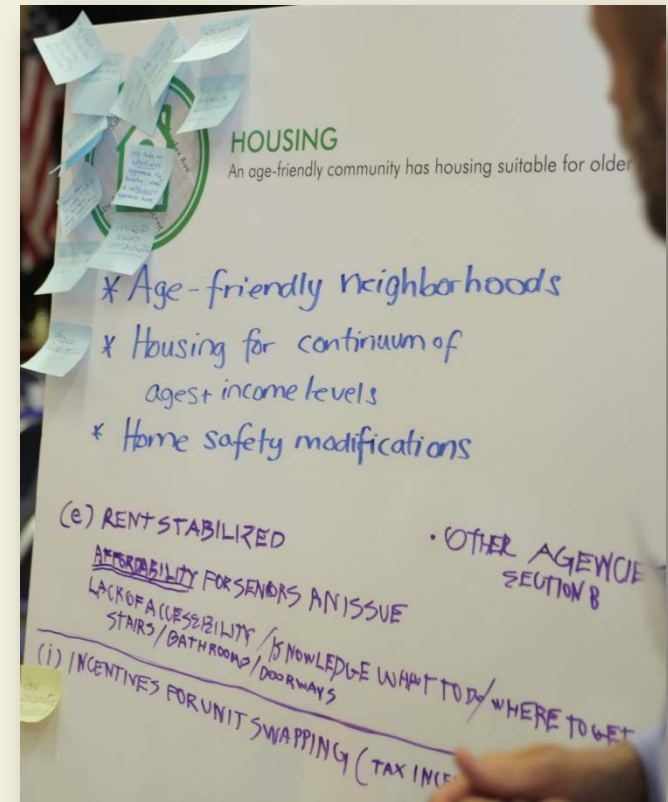 HOUSING
An age-friendly community has housing suitable for older
* Age-friendly neighborhoods
* Housing for continuum of
ages + income levels
* Home safety modifications
(e) RENT STABILIZED
AFFORDABILITY FOR SENIORS AN ISSUE
LACK OF ACCESSIBILITY / KNOWLEDGE WHAT TO DO/WHERE TO GET
STAIRS/BATHROOMS/DOORWAYS
• OTHER AGENCIE
SECTION 8
(i) INCENTIVES FOR UNIT SWAPPING (TAX INCE